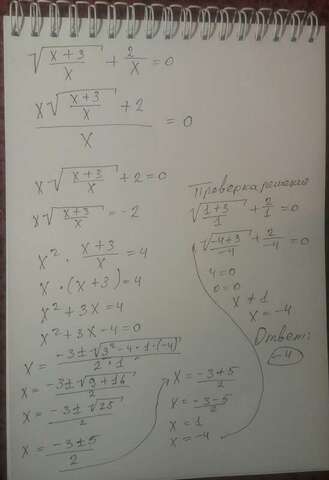 √((x+3)/x) + 2/x = 0
(x√((x+3)/x) + 2)/x = 0
x√((x+3)/x) + 2 = 0
x√((x+3)/x) = -2
x² · (x+3)/x = 4
x · (x+3) = 4
x² + 3x = 4
x² + 3x - 4 = 0
x = (-3±√(3² - 4 · 1 · (-4)))/(2 · 1)
x = (-3±√(9+16))/2
x = (-3±√25)/2
x = (-3±5)/2
x = (-3+5)/2
x = (-3-5)/2
x = 1
x = -4
Проверка решения
√((1+3)/1) + 2/1 = 0
√((-4+3)/-4) + 2/-4 = 0
4 = 0
0 = 0
x ≠ 1
x = -4
Ответ:
-4